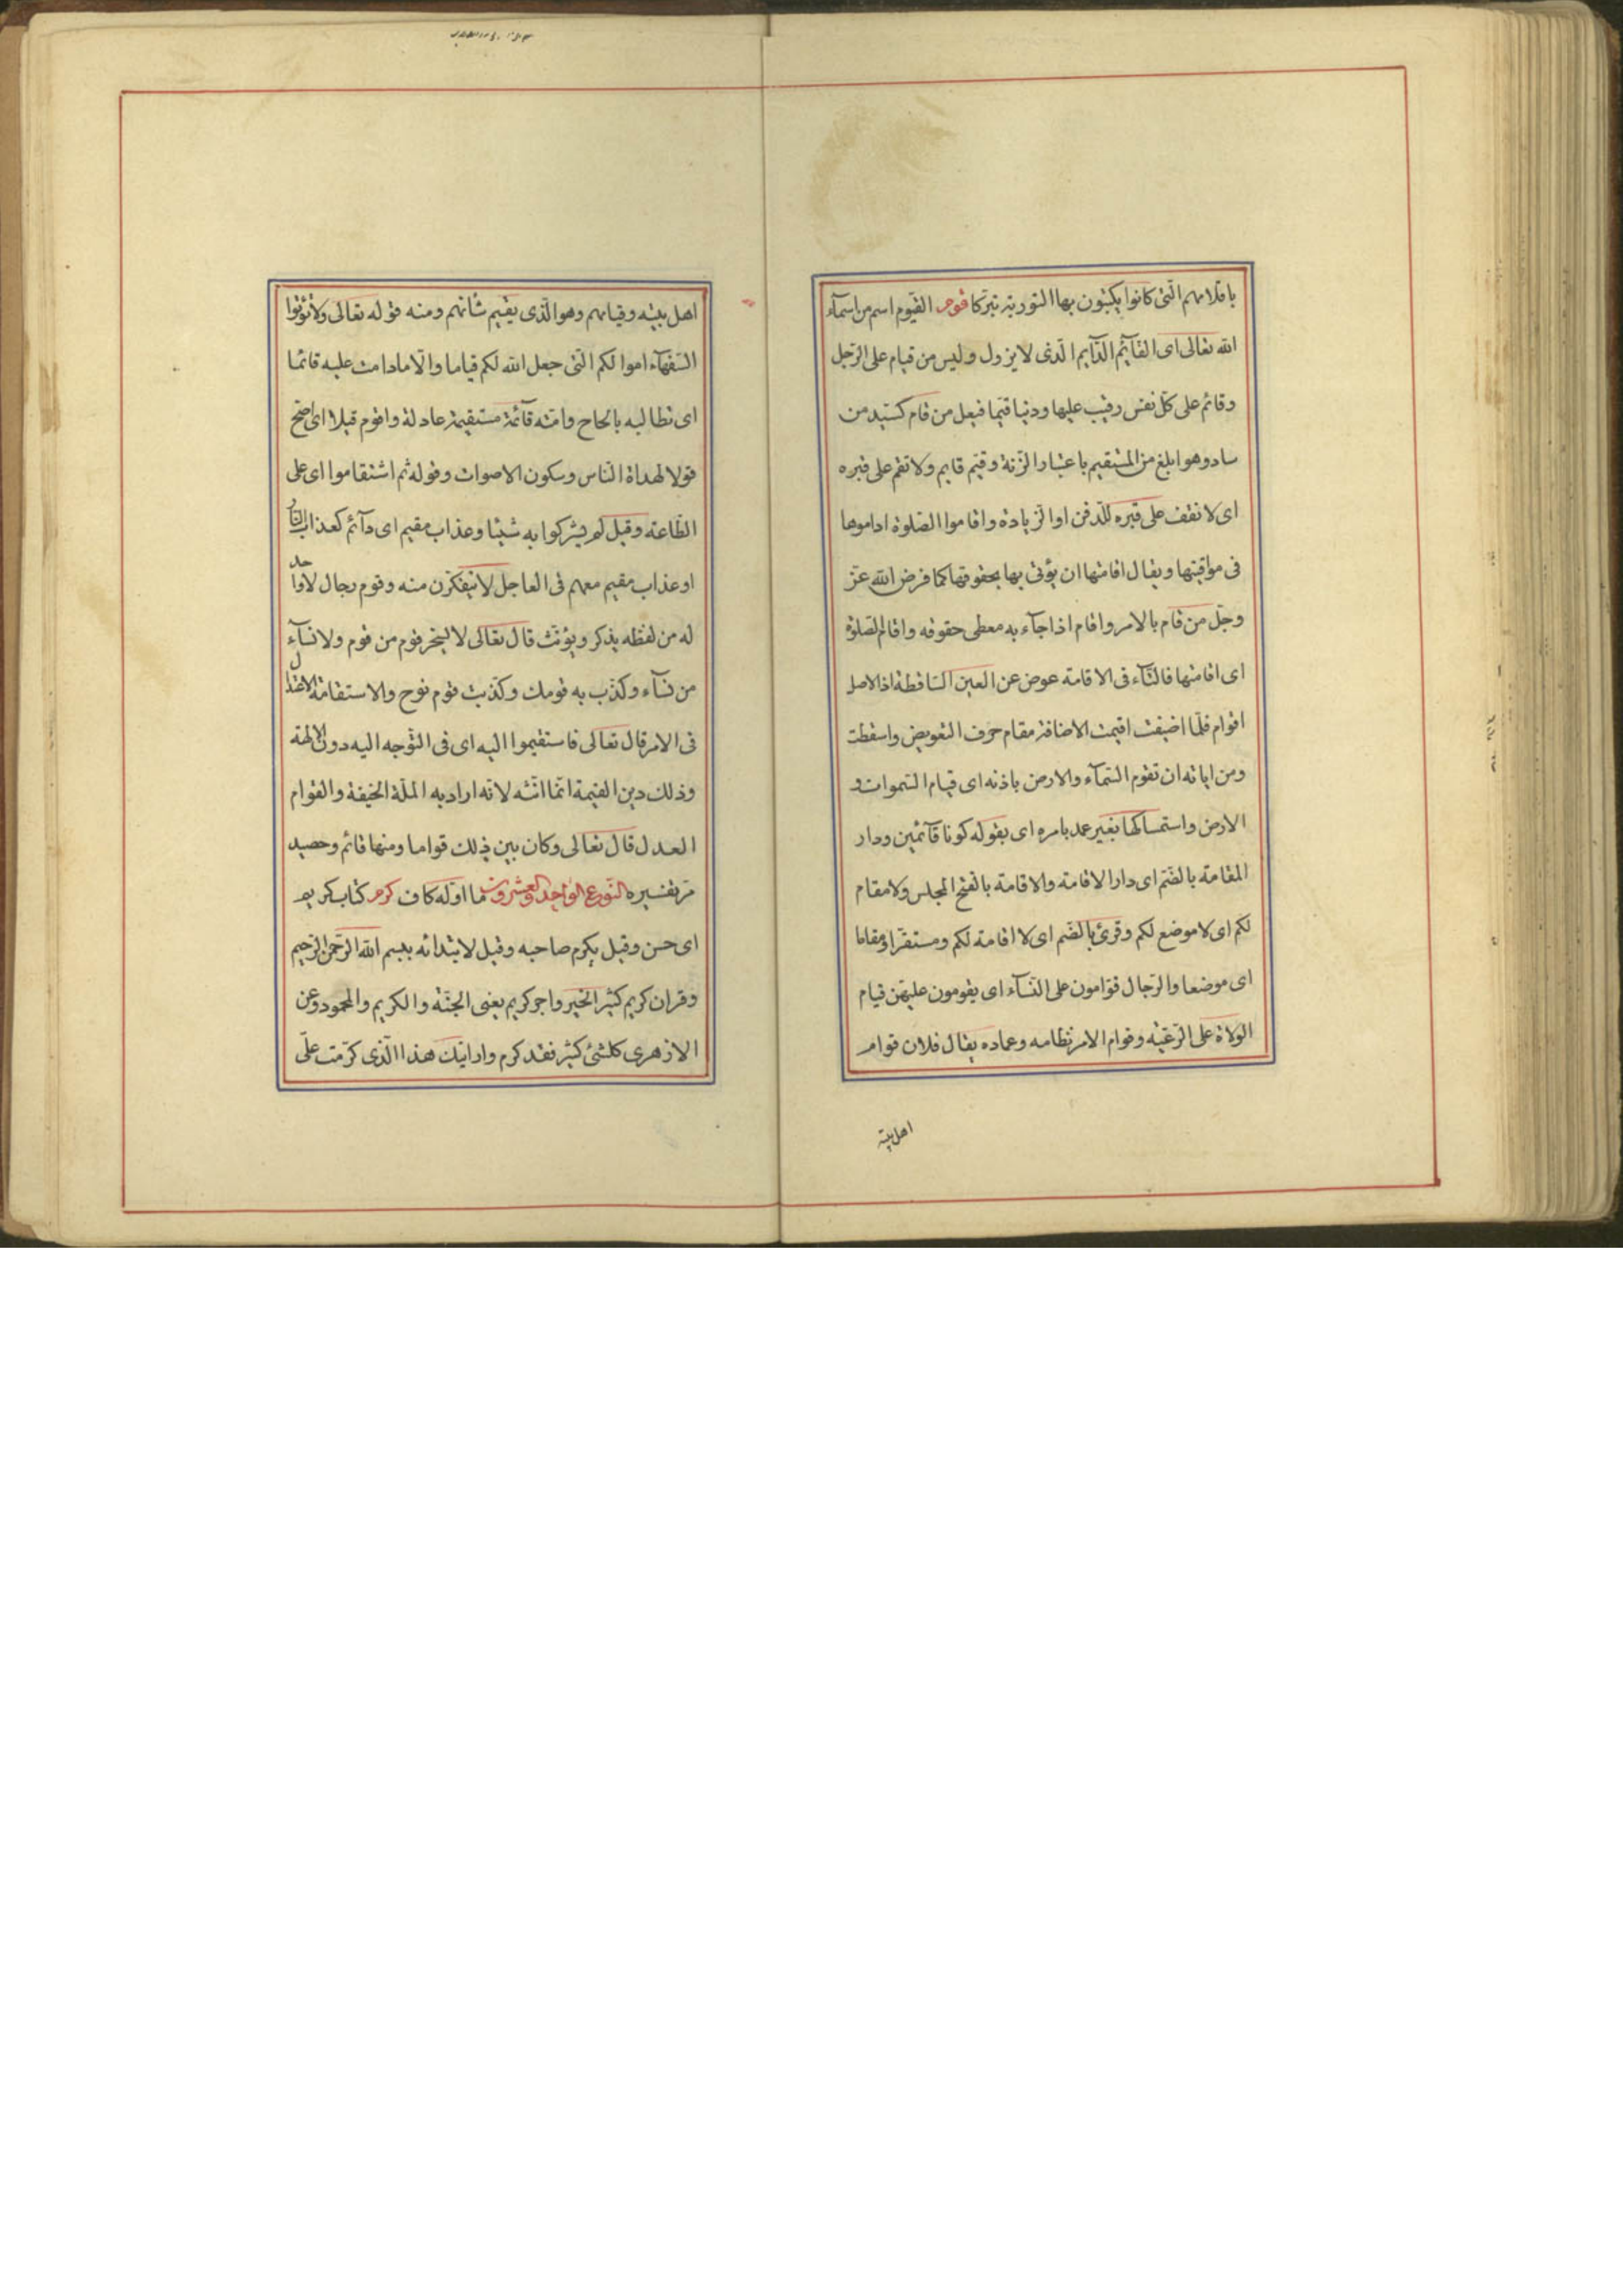 باقلامهم الّتى كانوا يكتبون بها التورية تبرّكا قوم القيّوم اسم من اسمآء
الله تعالى اى القآئم الدّآيم الّذى لا يزول وليس من قيام على الرّجل
وقائم على كلّ نفس رقيب عليها ودينا قيّما فيعل من قام كسيّد من
ساد وهو ابلغ من المستقيم باعتبار الزّنة وقيّم قايم ولا تقم على قبره
اى لا تقف على قبره للدّفن او الزّيادة واقاموا الصّلوة اداموها
فى مواقيتها ويقال اقامتها ان يؤتى بها بحقوقها كما فرض الله عزّ
وجلّ من قام بالامر واقام اذا جآء به معطى حقوقه واقام الصّلوة
اى اقامتها فالتّآء فى الاقامة عوض عن العين السّاقطة اذ الاصل
اقوام فلمّا اضيفت اقيمت الاضافة مقام حرف التعويض واسقطت
ومن اياته ان تقوم السّمآء والارض باذنه اى قيام السّموات و
الارض واستمساكها بغير عمد بامره اى بقوله كونا قآئمين ودار
المقامة بالضّم اى دار الاقامة والاقامة بالفتح المجلس ولا مقام
لكم اى لا موضع لكم وقرئ بالضّم اى لا اقامة لكم ومستقرّا ومقاما
اى موضعا والرّجال قوّامون على النّسآء اى يقومون عليهنّ قيام
الولاة على الرّعيّة وقوام الامر نظامه وعماده يقال فلان قوام
اهل بيته
اهل بيته وقيامهم وهو الّذى يقيم شانهم ومنه قوله تعالى ولا تؤتوا
السّفهآء اموالكم الّتى جعل الله لكم قياما والّا ما دامت عليه قائما
اى تطالبه بالحاح وامّة قآئمة مستقيمة عادلة واقوم قيلا اى اصحّ
قولا لهداة النّاس وسكون الاصوات وقوله ثم استقاموا اى على
الطّاعة وقيل لم يشركوا به شيئا وعذاب مقيم اى دآئم كعذاب النّار
او عذاب مقيم معهم فى العاجل لا ينفكّون منه وقوم رجال لا واحد
له من لفظه يذكر ويؤنّث قال تعالى لا يسخر قوم من قوم ولا نسآء
من نسآء وكذّب به قومك وكذّبت قوم نوح والاستقامة الاعتدال
فى الامر قال تعالى فاستقيموا اليه اى فى التّوجه اليه دون الالهة
وذلك دين القيمة انّما انّثه لانّه اراد به الملّة الحنيفة والقوام
العدل قال تعالى وكان بين ذلك قواما ومنها قائم وحصيد
مرّ تفسيره النّوع الواحد والعشرون ما اوّله كاف كرم كتاب كريم
اى حسن وقيل يكرم صاحبه وقيل لابتدائه ببسم الله الرّحمن الرّحيم
وقران كريم كثير الخير واجر كريم يعنى الجنّة والكريم والمحمود وعن
الازهرى كلّ شئ كثير فقد كرم وارايتك هذا الّذى كرّمت علىّ